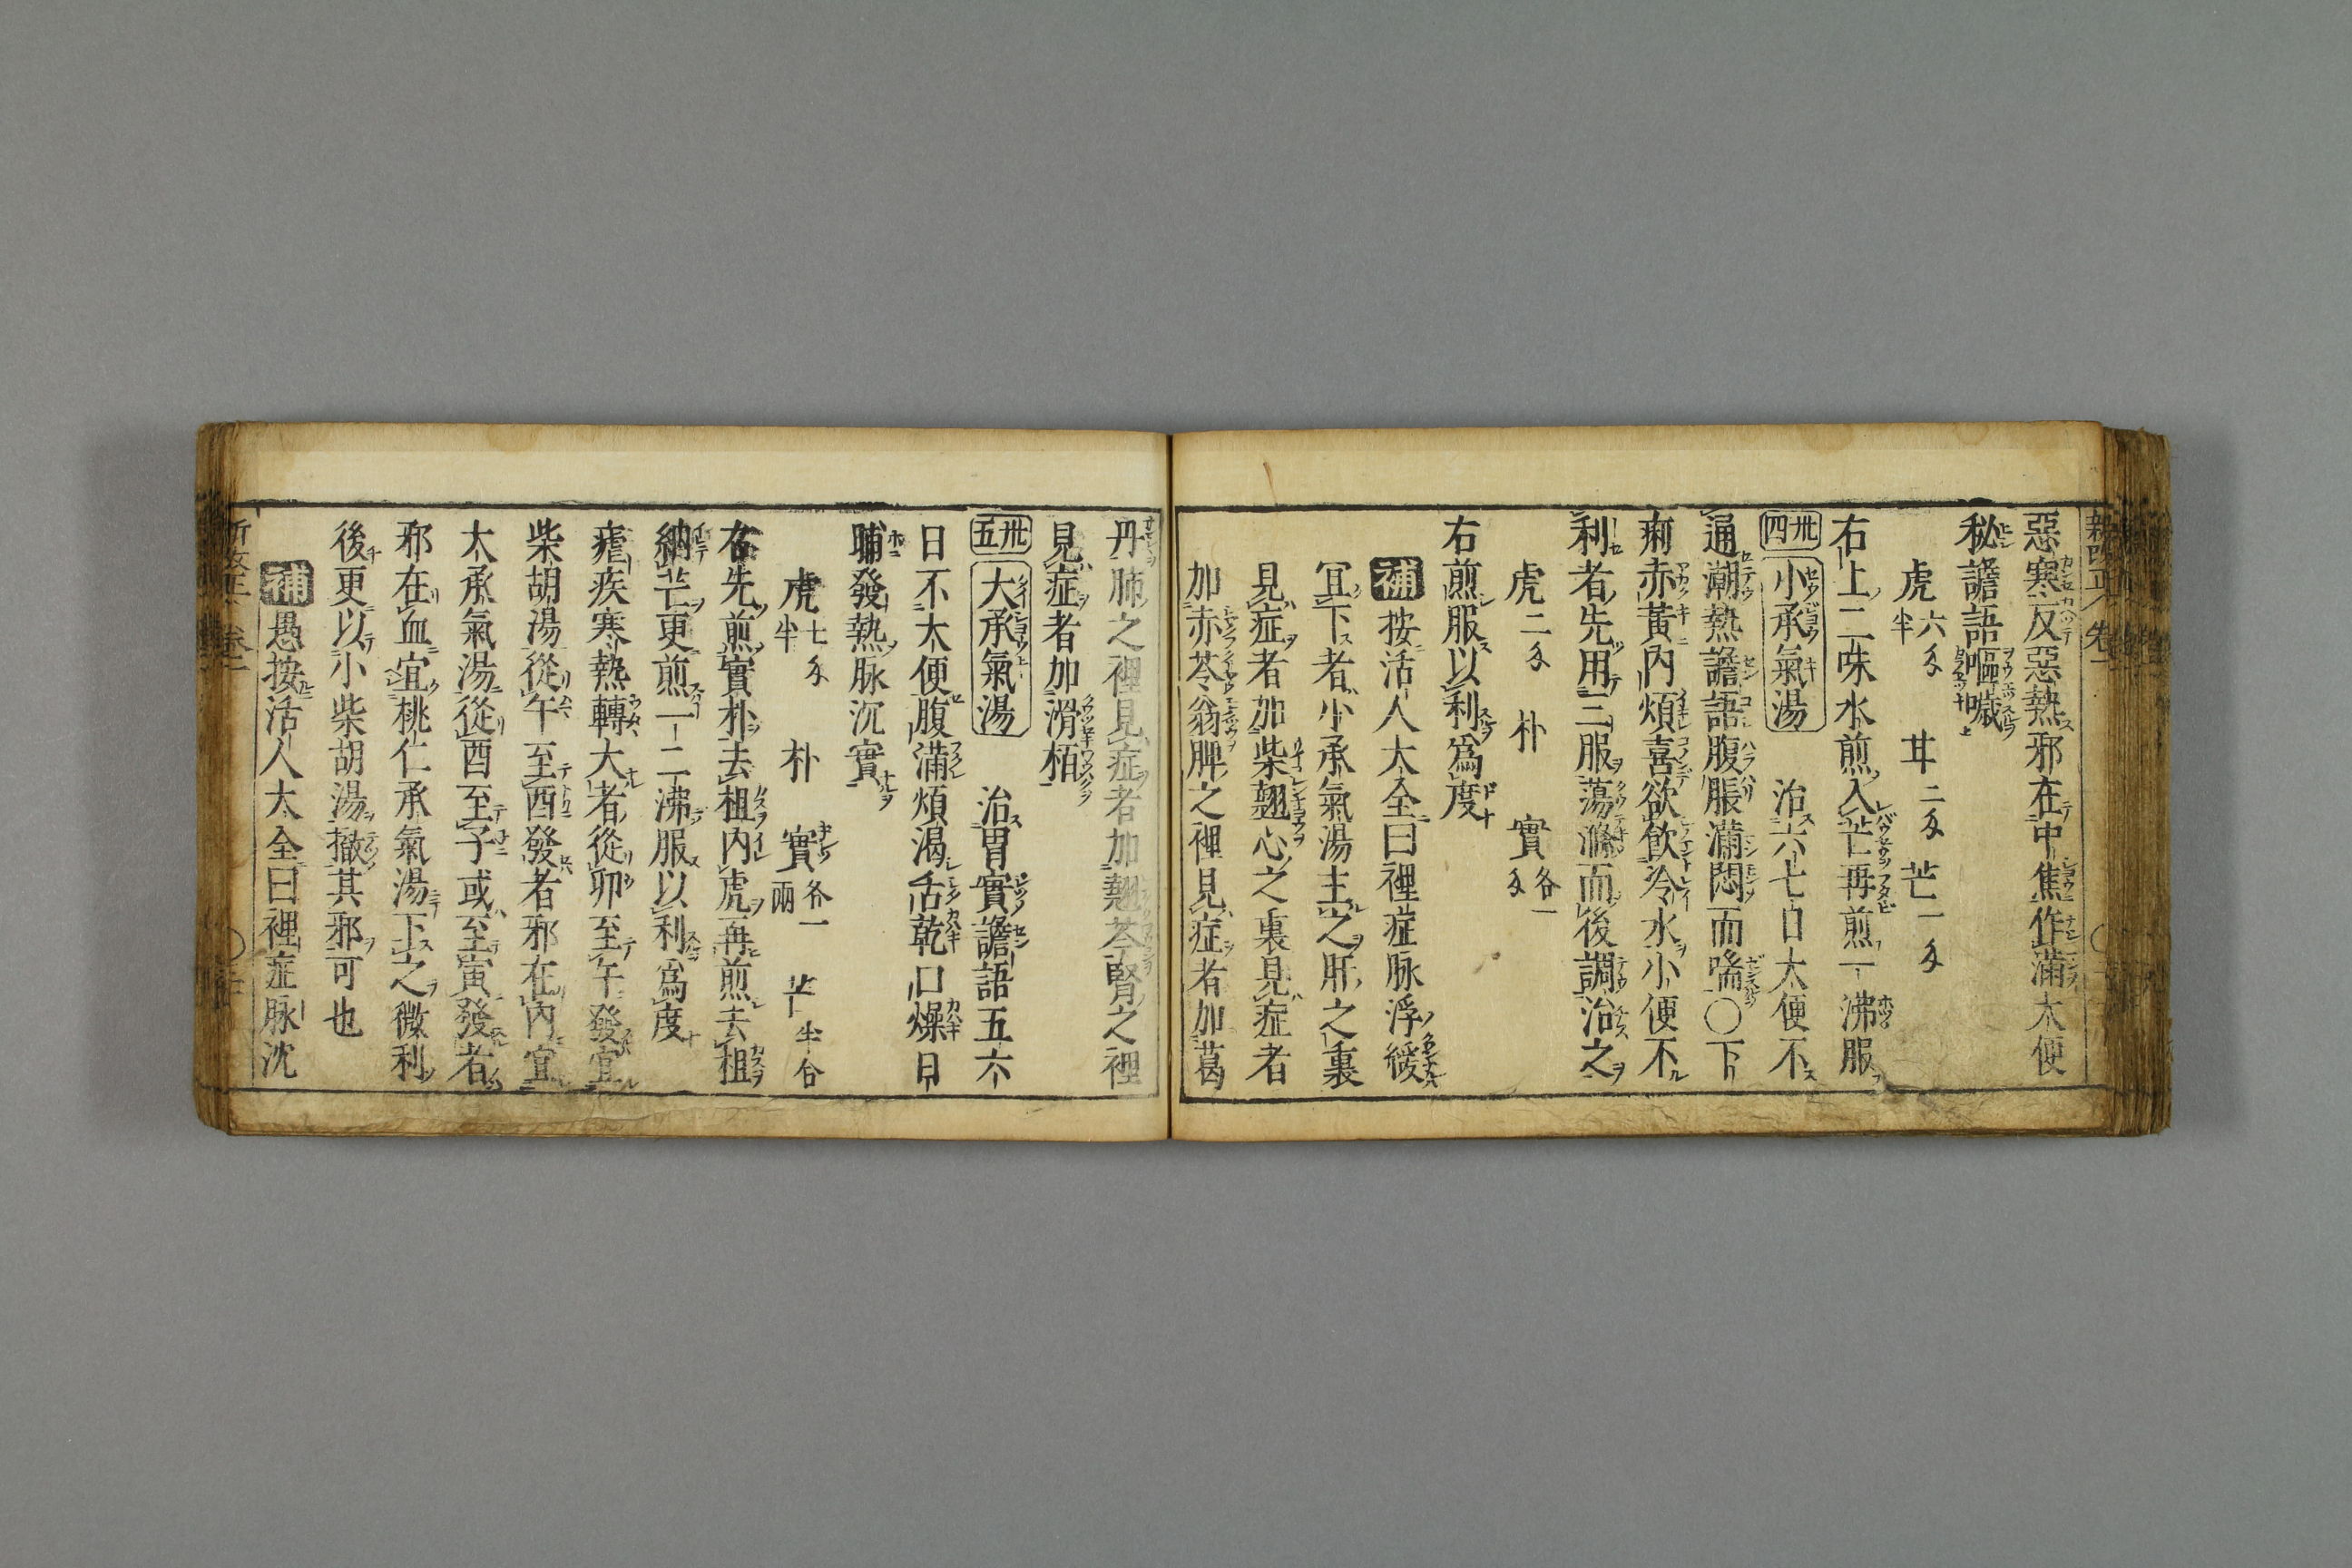 惡寒反惡熱邪在中焦作滿大便
秘譫語嘔噦
虎六匁半 甘二匁 芒一匁
右上二味水煎入芒再煎一沸服
卅四 小承氣湯 治六七日大便不
通潮熱譫語腹脹滿悶而喘〇下
痢赤黃內煩喜欲飮冷水小便不
利者先用三服蕩滌而後調治之
虎二匁 朴 實各一匁
右煎服以利爲度
補 按活人大全曰裡症脉浮緩
冝下者小承氣湯主之肝之裏
見症者加柴翹心之裏見症者
加赤芩翁脾之裡見症者加葛
丹肺之裡見症者加翹芩腎之裡
見症者加滑栢
卅五 大承氣湯 治胃實譫語五六
日不大便腹滿煩渴舌乾口燥日
晡發熱脉沉實
虎七匁半 朴 實各一兩 芒半合
右先煎實朴去柤內虎再煎去柤
納芒更煎一二沸服以利爲度
瘧疾寒熱轉大者從卯至午發宜
柴胡湯從午至酉發者邪在內宜
大承氣湯從酉至子或至寅發者
邪在血宜桃仁承氣湯下之微利
後更以小柴胡湯撤其邪可也
補 愚按活人大全曰裡症脉沈